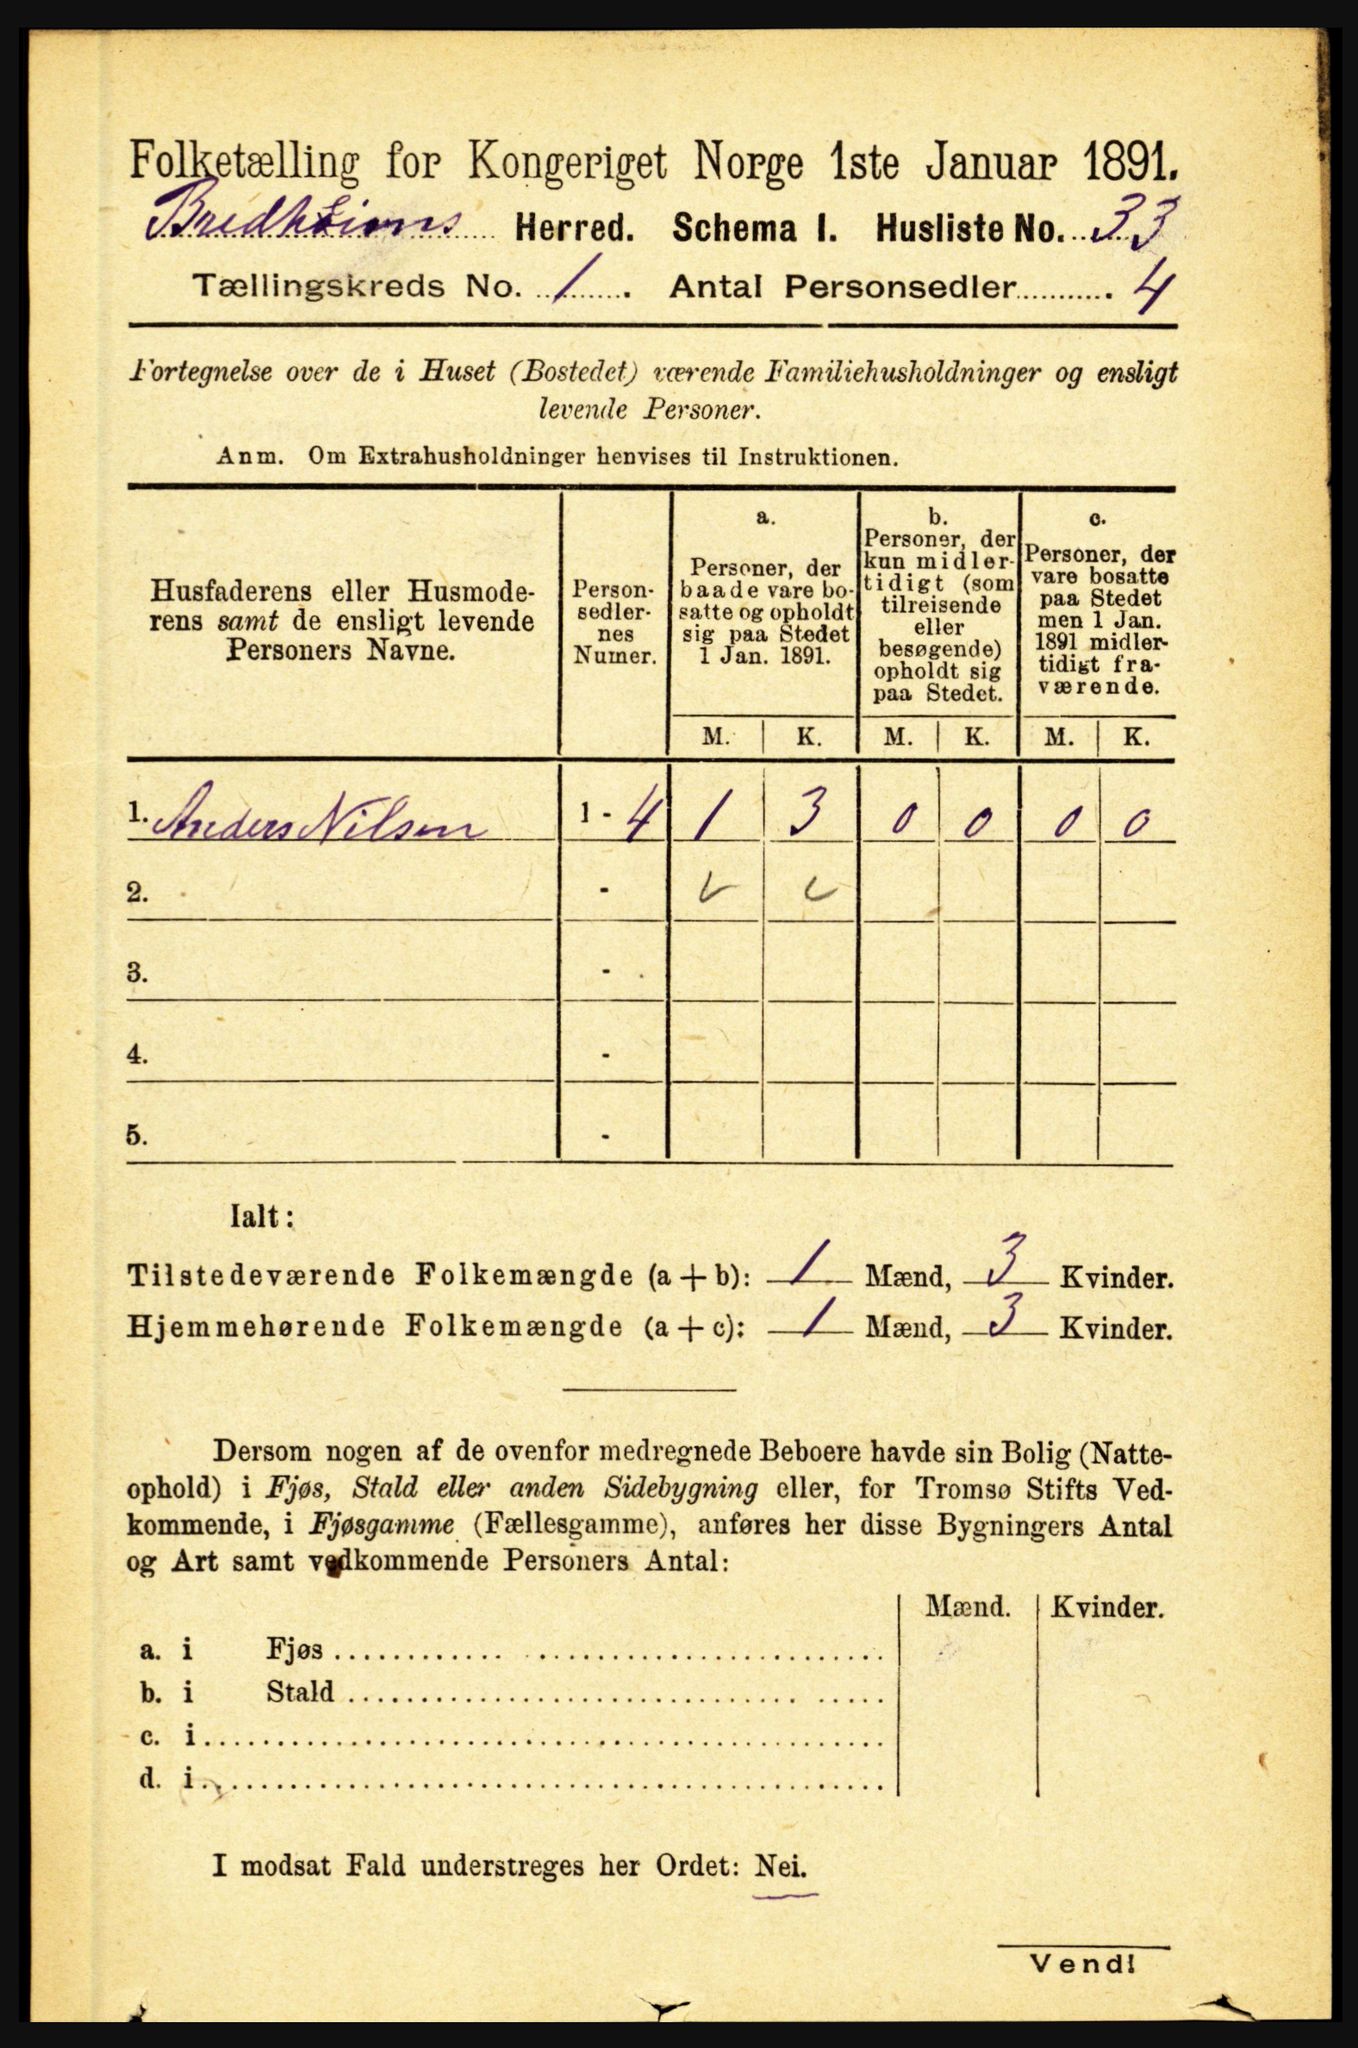 Folketælling for Kongeriget Norge 1ste Januar 1891.
Bredheims Herred. Schema I. Husliste No. 33
Tællingskreds No. 1. Antal Personsedler. 4
Fortegnelse over de i Huset (Bostedet) værende Familiehusholdninger og ensligt
levende Personer.
Anm. Om Extrahusholdninger henvises til Instruktionen.
Husfaderens eller Husmode-
rens samt de ensligt levende
Personers Navne.
Person-
sedler-
nes
Numer.
a.
Personer, der
baade vare bo-
satte og opholdt
sig paa Stedet
1 Jan. 1891.
b.
Personer, der
kun midler-
tidigt (som
tilreisende
eller
besøgende)
opholdt sig
paa Stedet.
c.
Personer, der
vare bosatte
paa Stedet
men 1 Jan.
1891 midler-
tidigt fra-
værende.
M. K. M. K. M. K.
1. Anders Nilsen 1 - 4 1 3 0 0 0 0
2. -
3. -
4. -
5. -
Ialt:
Tilstedeværende Folkemængde (a + b): 1 Mænd, 3 Kvinder.
Hjemmehørende Folkemængde (a + c): 1 Mænd, 3 Kvinder.
Dersom nogen af de ovenfor medregnede Beboere havde sin Bolig (Natte-
ophold) i Fjøs, Stald eller anden Sidebygning eller, for Tromsø Stifts Ved-
kommende, i Fjøsgamme (Fællesgamme), anføres her disse Bygningers Antal
og Art samt vedkommende Personers Antal:
Mænd. Kvinder.
a. i Fjøs
b. i Stald
c. i
d. i
I modsat Fald understreges her Ordet: Nei.
Vend!